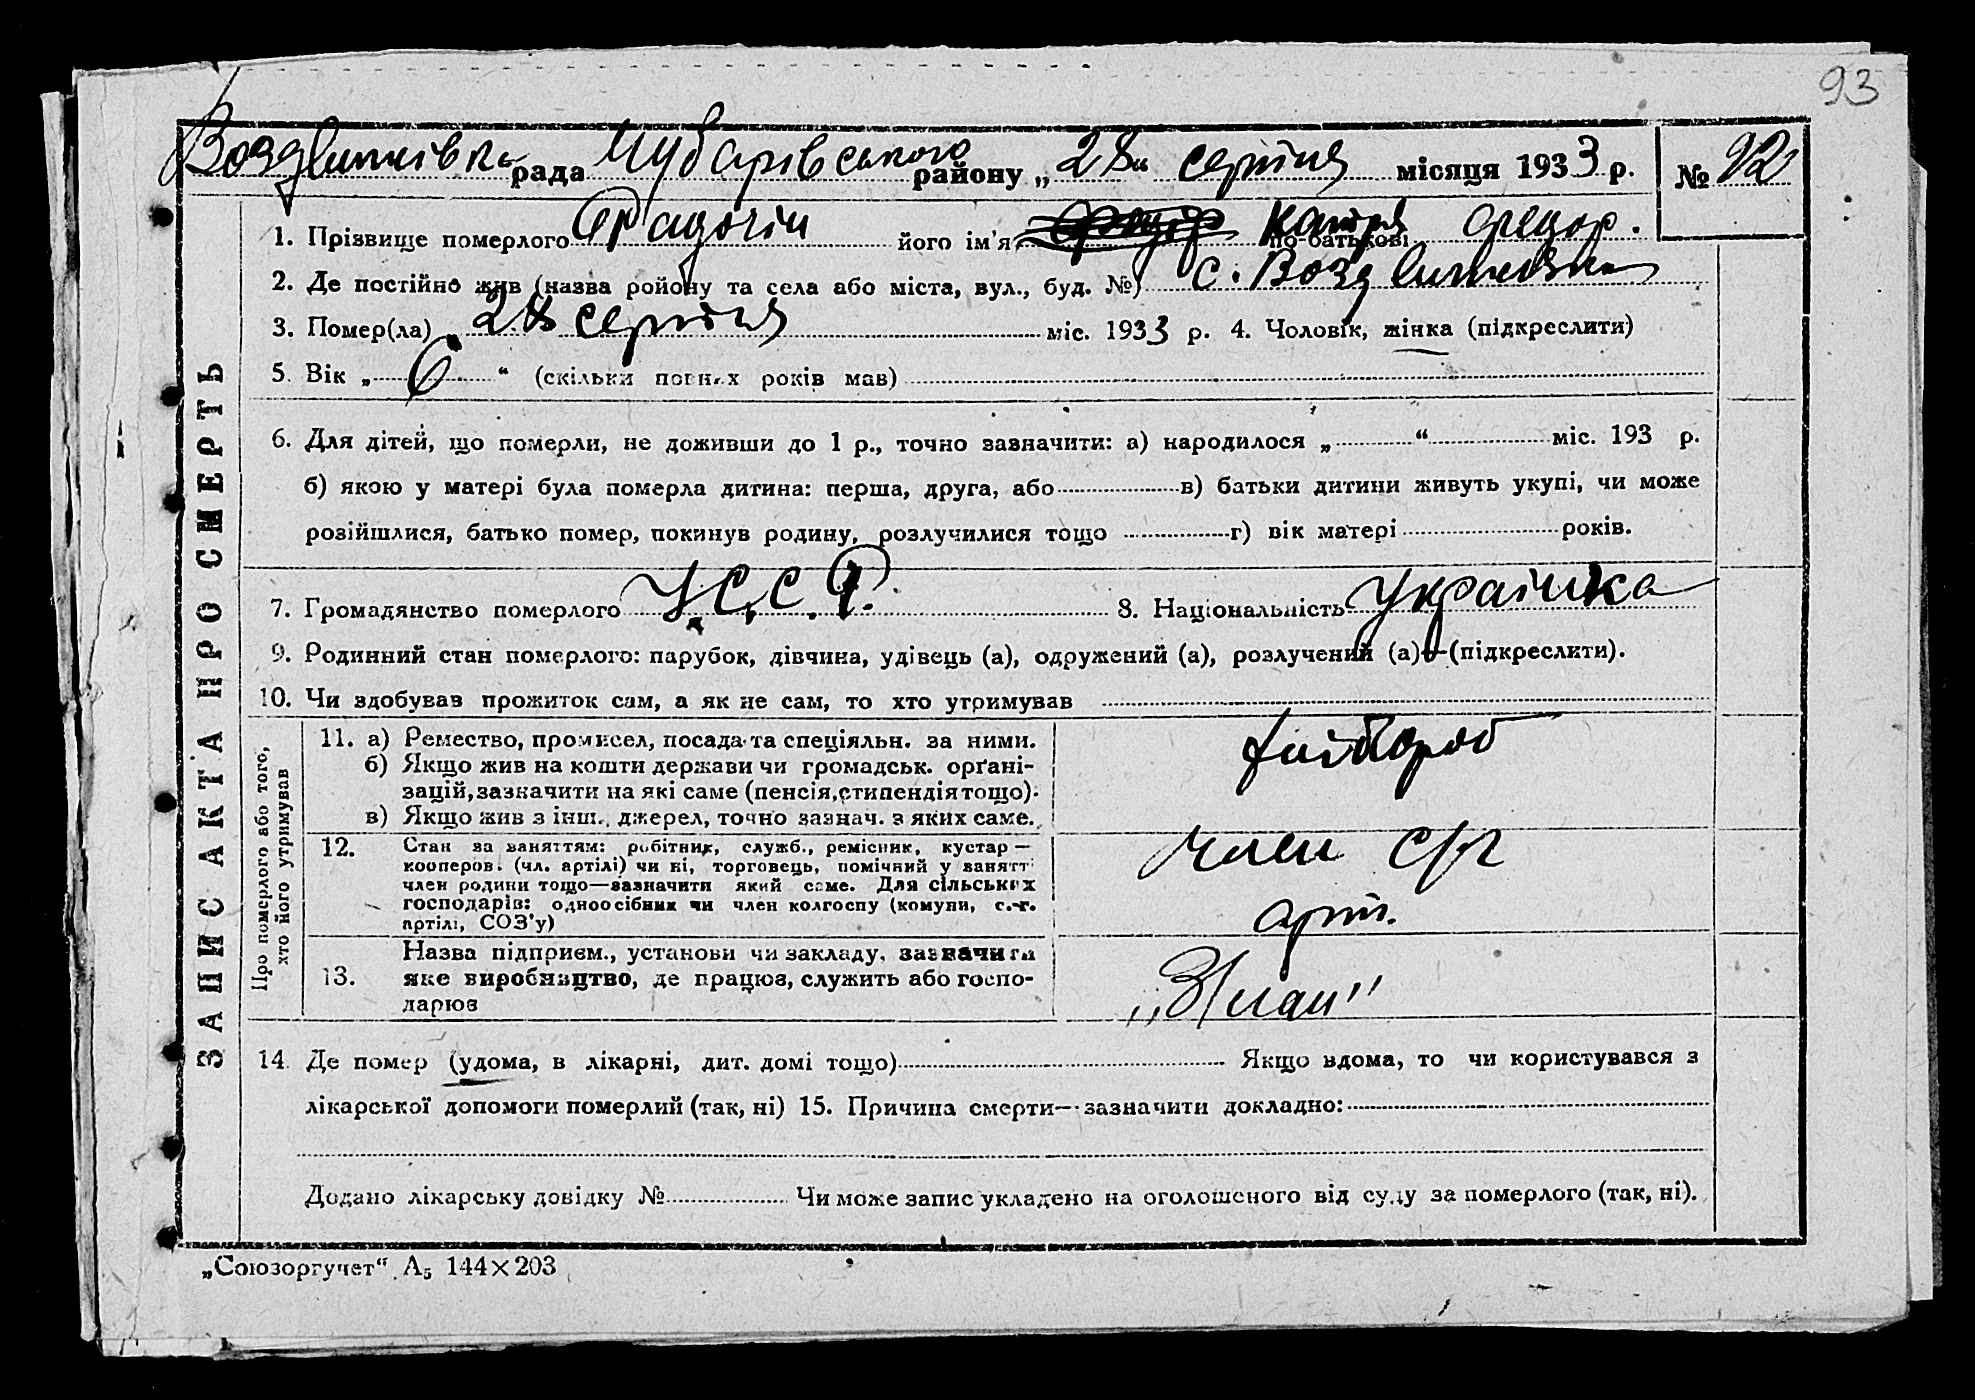 93
Воздвижівка рада Чубарівського району „28“ серпня місяця 1933 р. № 92
1. Прізвище померлого його ім'я Катря по-батькові Федор.
2. Де постійно жив (назва ройону та села або міста, вул., буд. №) с. Воздвижівка
3. Помер(ла) „28 серпня міс. 1933 р. 4. Чоловік, жінка (підкреслити)
5. Вік „ 6 “ (скільки повних років мав)
6. Для дітей, що померли, не доживши до 1 р., точно зазначити: а) народилося „ “ міс. 193 р.
б) якою у матері була померла дитина: перша, друга, або в) батьки дитини живуть укупі, чи може
розійшлися, батько помер, покинув родину, розлучилися тощо г) вік матері років.
7. Громадянство померлого У.С.С.Р. 8. Національність Українка
9. Родинний стан померлого: парубок, дівчина, удівець (а), одружений (а), розлучений (а)—(підкреслити).
10. Чи здобував прожиток сам, а як не сам, то хто утримував
ЗАПИС АКТА ПРО СМЕРТЬ
Про померлого або того,
хто його утримував
11. а) Ремество, промисел, посада та спеціяльн. за ними.
б) Якщо жив на кошти держави чи громадськ. орґані-
зацій, зазначити на які саме (пенсія, стипендія тощо).
в) Якщо жив з інш. джерел, точно зазнач. з яких саме.
хлібороб
12. Стан за заняттям: робітник, служб., ремісник, кустар —
кооперов. (чл. артілі) чи ні, торговець, помічний у занятті
член родини тощо—зазначити який саме. Для сільських
господарів: одноосібник чи член колгоспу (комуни, с.-г.
артілі, СОЗ'у)
член с/г
арт.
13. Назва підприєм., установи чи закладу, зазначити
яке виробництво, де працює, служить або госпо-
дарює
14. Де помер (удома, в лікарні, дит. домі тощо) Якщо вдома, то чи користувався з
лікарської допомоги померлий (так, ні) 15. Причина смерти—зазначити докладно:
Додано лікарську довідку № Чи може запис укладено на оголошеного від суду за померлого (так, ні).
„Союзоргучет“ А5 144×203